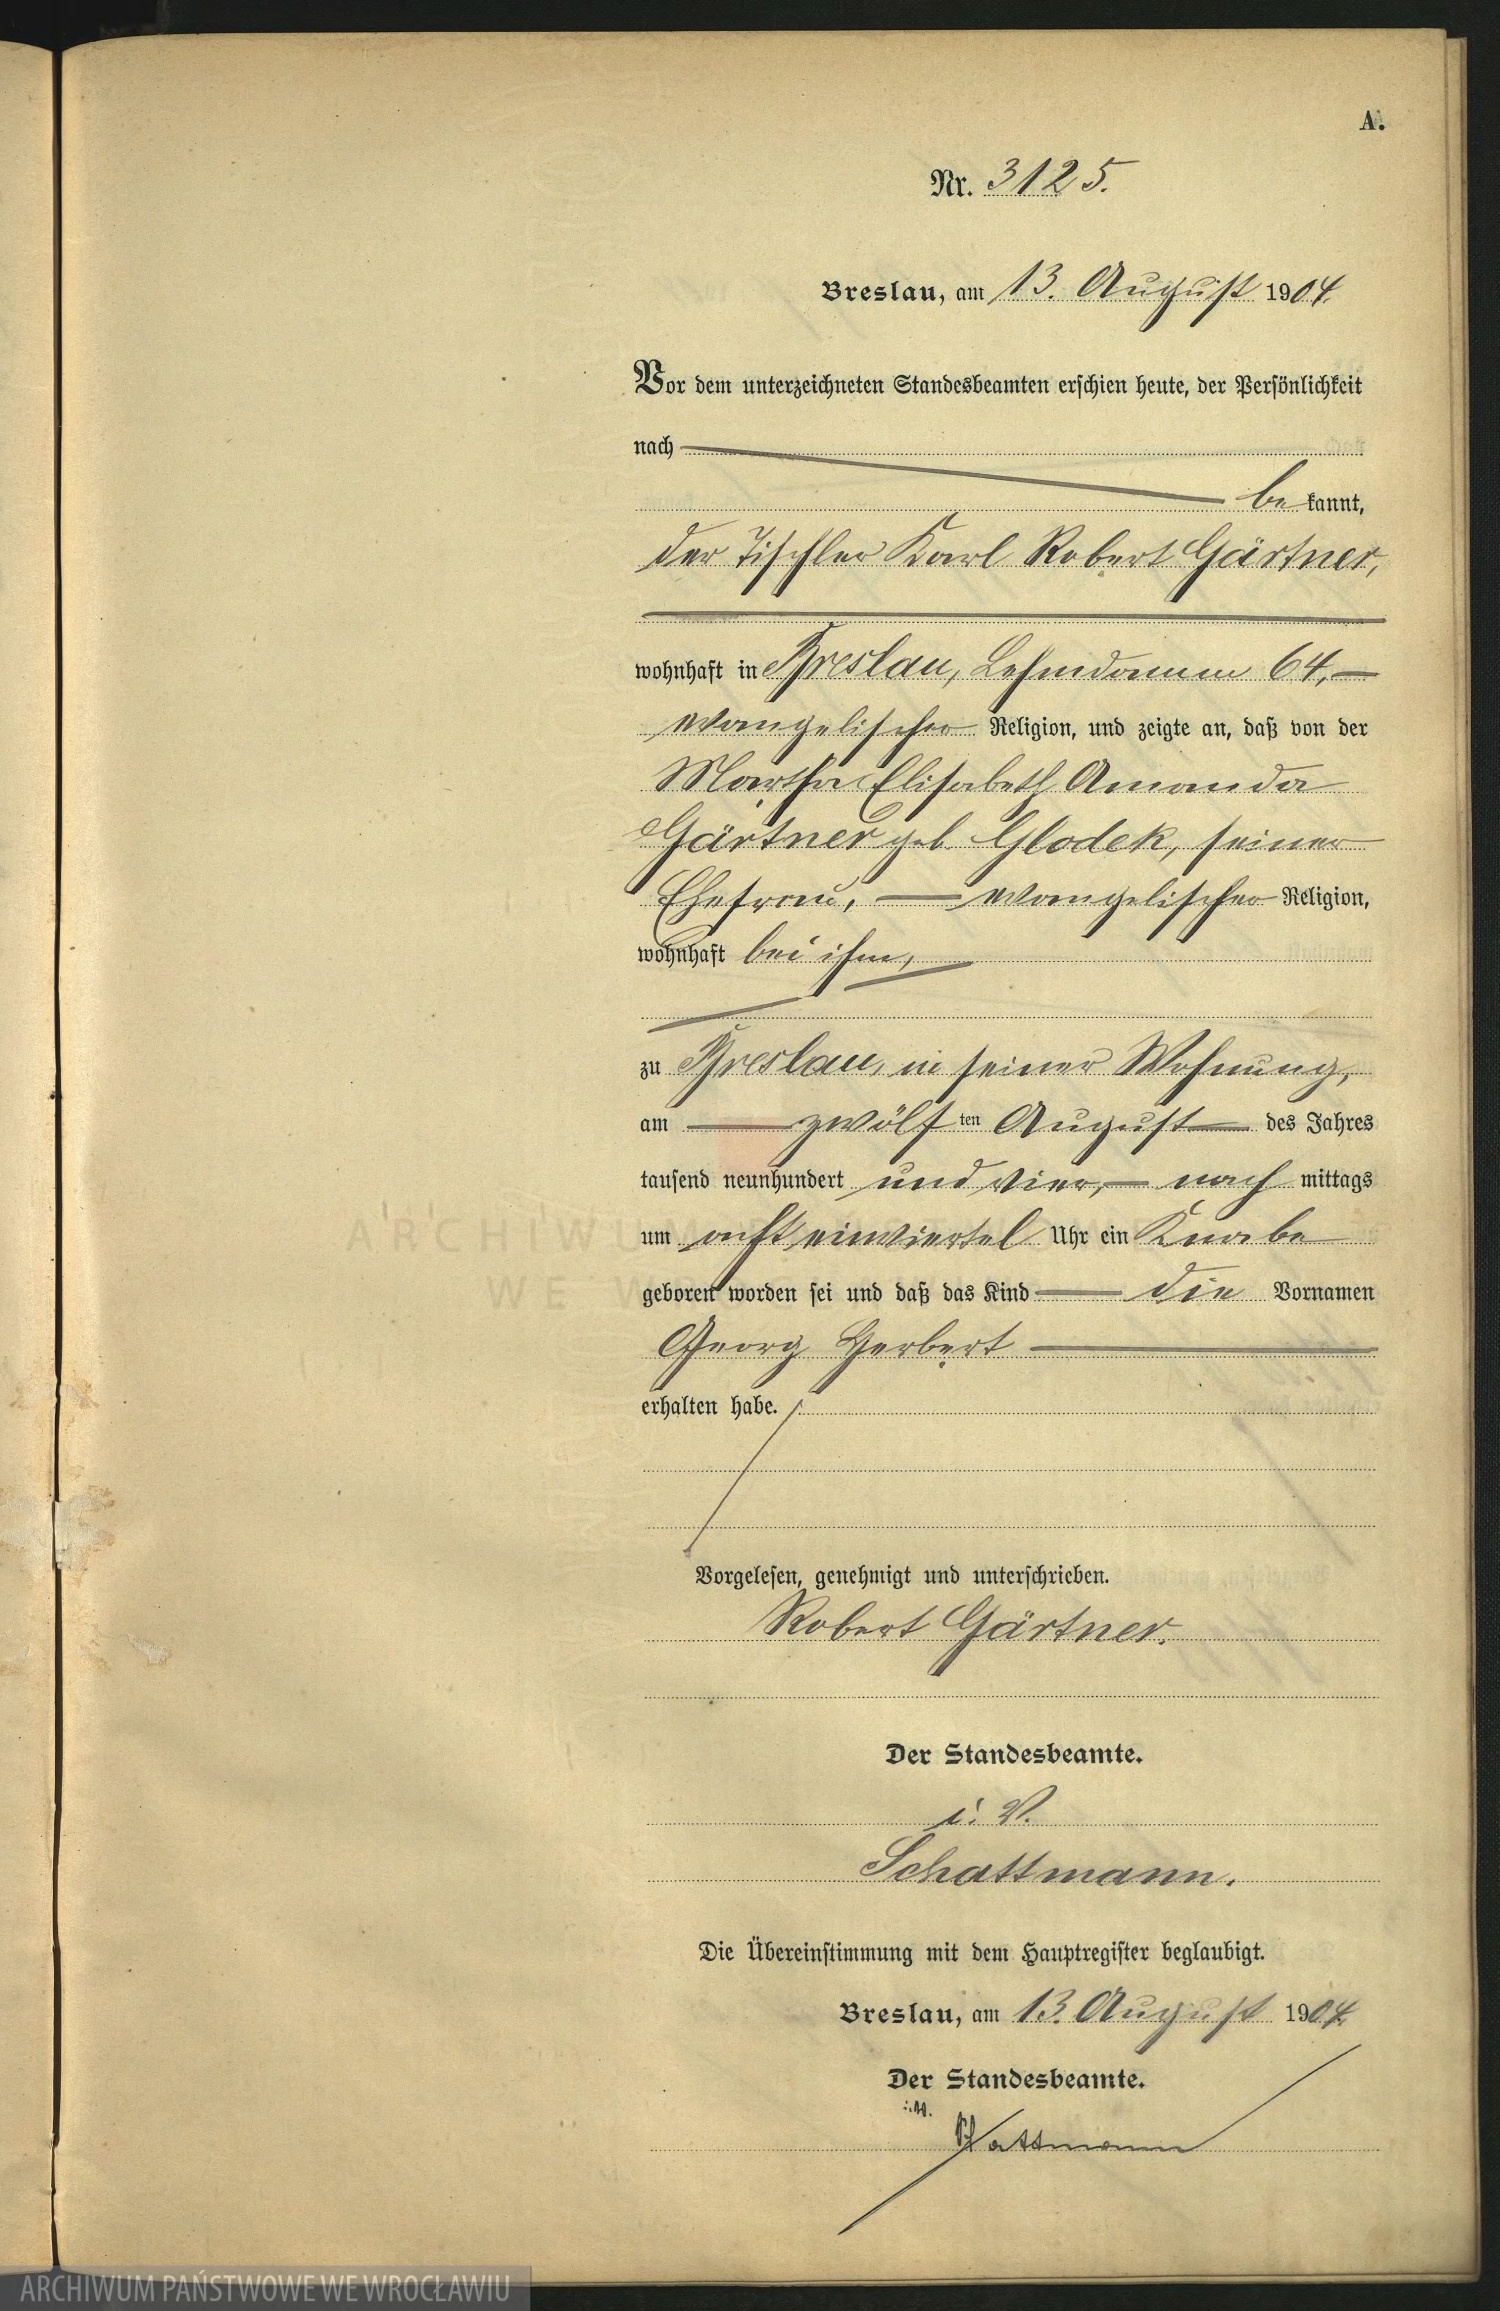 A.
Nr. 3125.
Breslau, am 13. August 1904.
Vor dem unterzeichneten Standesbeamten erschien heute, der Persönlichkeit
nach
be kannt,
der Tischler Karl Robert Gärtner,
wohnhaft in Breslau, Lehmdamm 64,
evangelischer Religion, und zeigte an, daß von der
Martha Elisabeth Amanda
Gärtner geb. Glodek, seiner
Ehefrau, evangelischer Religion,
wohnhaft bei ihm,
zu Breslau, in seiner Wohnung,
am zwölf ten August des Jahres
tausend neunhundert und vier, nach mittags
um acht einviertel Uhr ein Knabe
geboren worden sei und daß das Kind die Vornamen
Georg Herbert
erhalten habe.
Vorgelesen, genehmigt und unterschrieben.
Robert Gärtner.
Der Standesbeamte.
i. V.
Schattmann.
Die Übereinstimmung mit dem Hauptregister beglaubigt.
Breslau, am 13. August 1904.
Der Standesbeamte.
i. V.
Schattmann
ARCHIWUM PAŃSTWOWE WE WROCŁAWIU